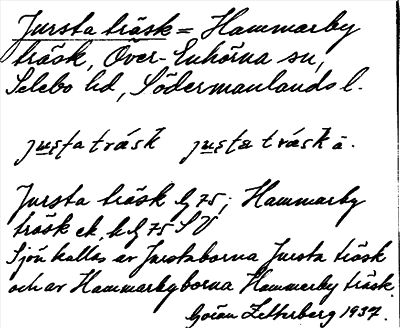 Jursta träsk = Hammarby
träsk, Över-Enhörna sn,
Selebo hd, Södermanlands l.
jus̲ta trásk jus̲tɐ trásk ä.
Jursta träsk Gg 75; Hammarby
träsk ek. bl 75 SV
Sjön kallas av Jurstaborna Jursta träsk
och av Hammarbyborna Hammarby träsk.
Göran Zetterberg 1937.